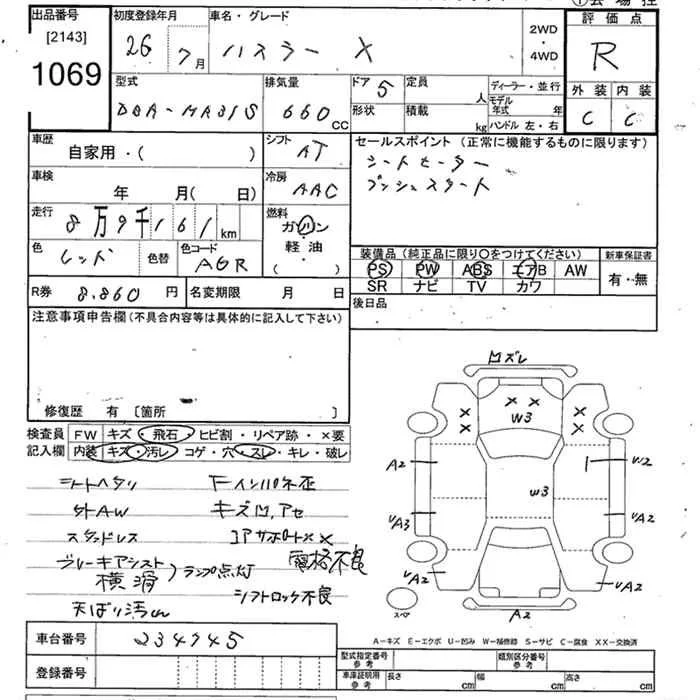 出品番号 初度登録年月 車名・グレード 評価点
[2143] 26 7月 ハスラー X 2WD・4WD R
1069
型式 排気量 ドア 5 定員 人 ディーラー・並行 外装 内装
DBA-MR31S 660 CC 形状 積載 kg モデル年式 年 C C
ハンドル 左・右
車歴 シフト AT セールスポイント (正常に機能するものに限ります)
自家用・( ) シートヒーター
車検 冷房 プッシュスタート
年 月( 日) AAC
走行 8万9千161km 燃料 ガソリン・軽油・( )
色 レッド 色替 色コード 装備品(純正品に限り○をつけてください) 新車保証書
PS PW ABS エアB AW 有・無
SR ナビ TV カワ
R券 8.860円 名変期限 月 日 後日品
注意事項申告欄(不具合内容等は具体的に記入して下さい)
修復歴 有 〔箇所 〕
検査員 FW キズ・飛石・ヒビ割・リペア跡・×要
記入欄 内装 キズ・汚レ コゲ・穴・スレ・キレ・破レ
シートヘタリ
外AW キズ凹,アセ
スタッドレス コアサポートXX
ブレーキアシスト 横滑 ランプ点灯 骨格不良
シフトロック不良
天ばり汚れ
凹ズレ
× × × × × ×
W3
W3
A2 W2
A3 A2
A2 A2
A2
スペア
A−キズ E−エクボ U−凹み W−補修跡 S−サビ C−腐食 XX−交換済
車台番号 234745 型式指定番号 参考 類別区分番号 参考
登録番号 車庫証明用 参考 長さ cm 幅 cm 高さ cm